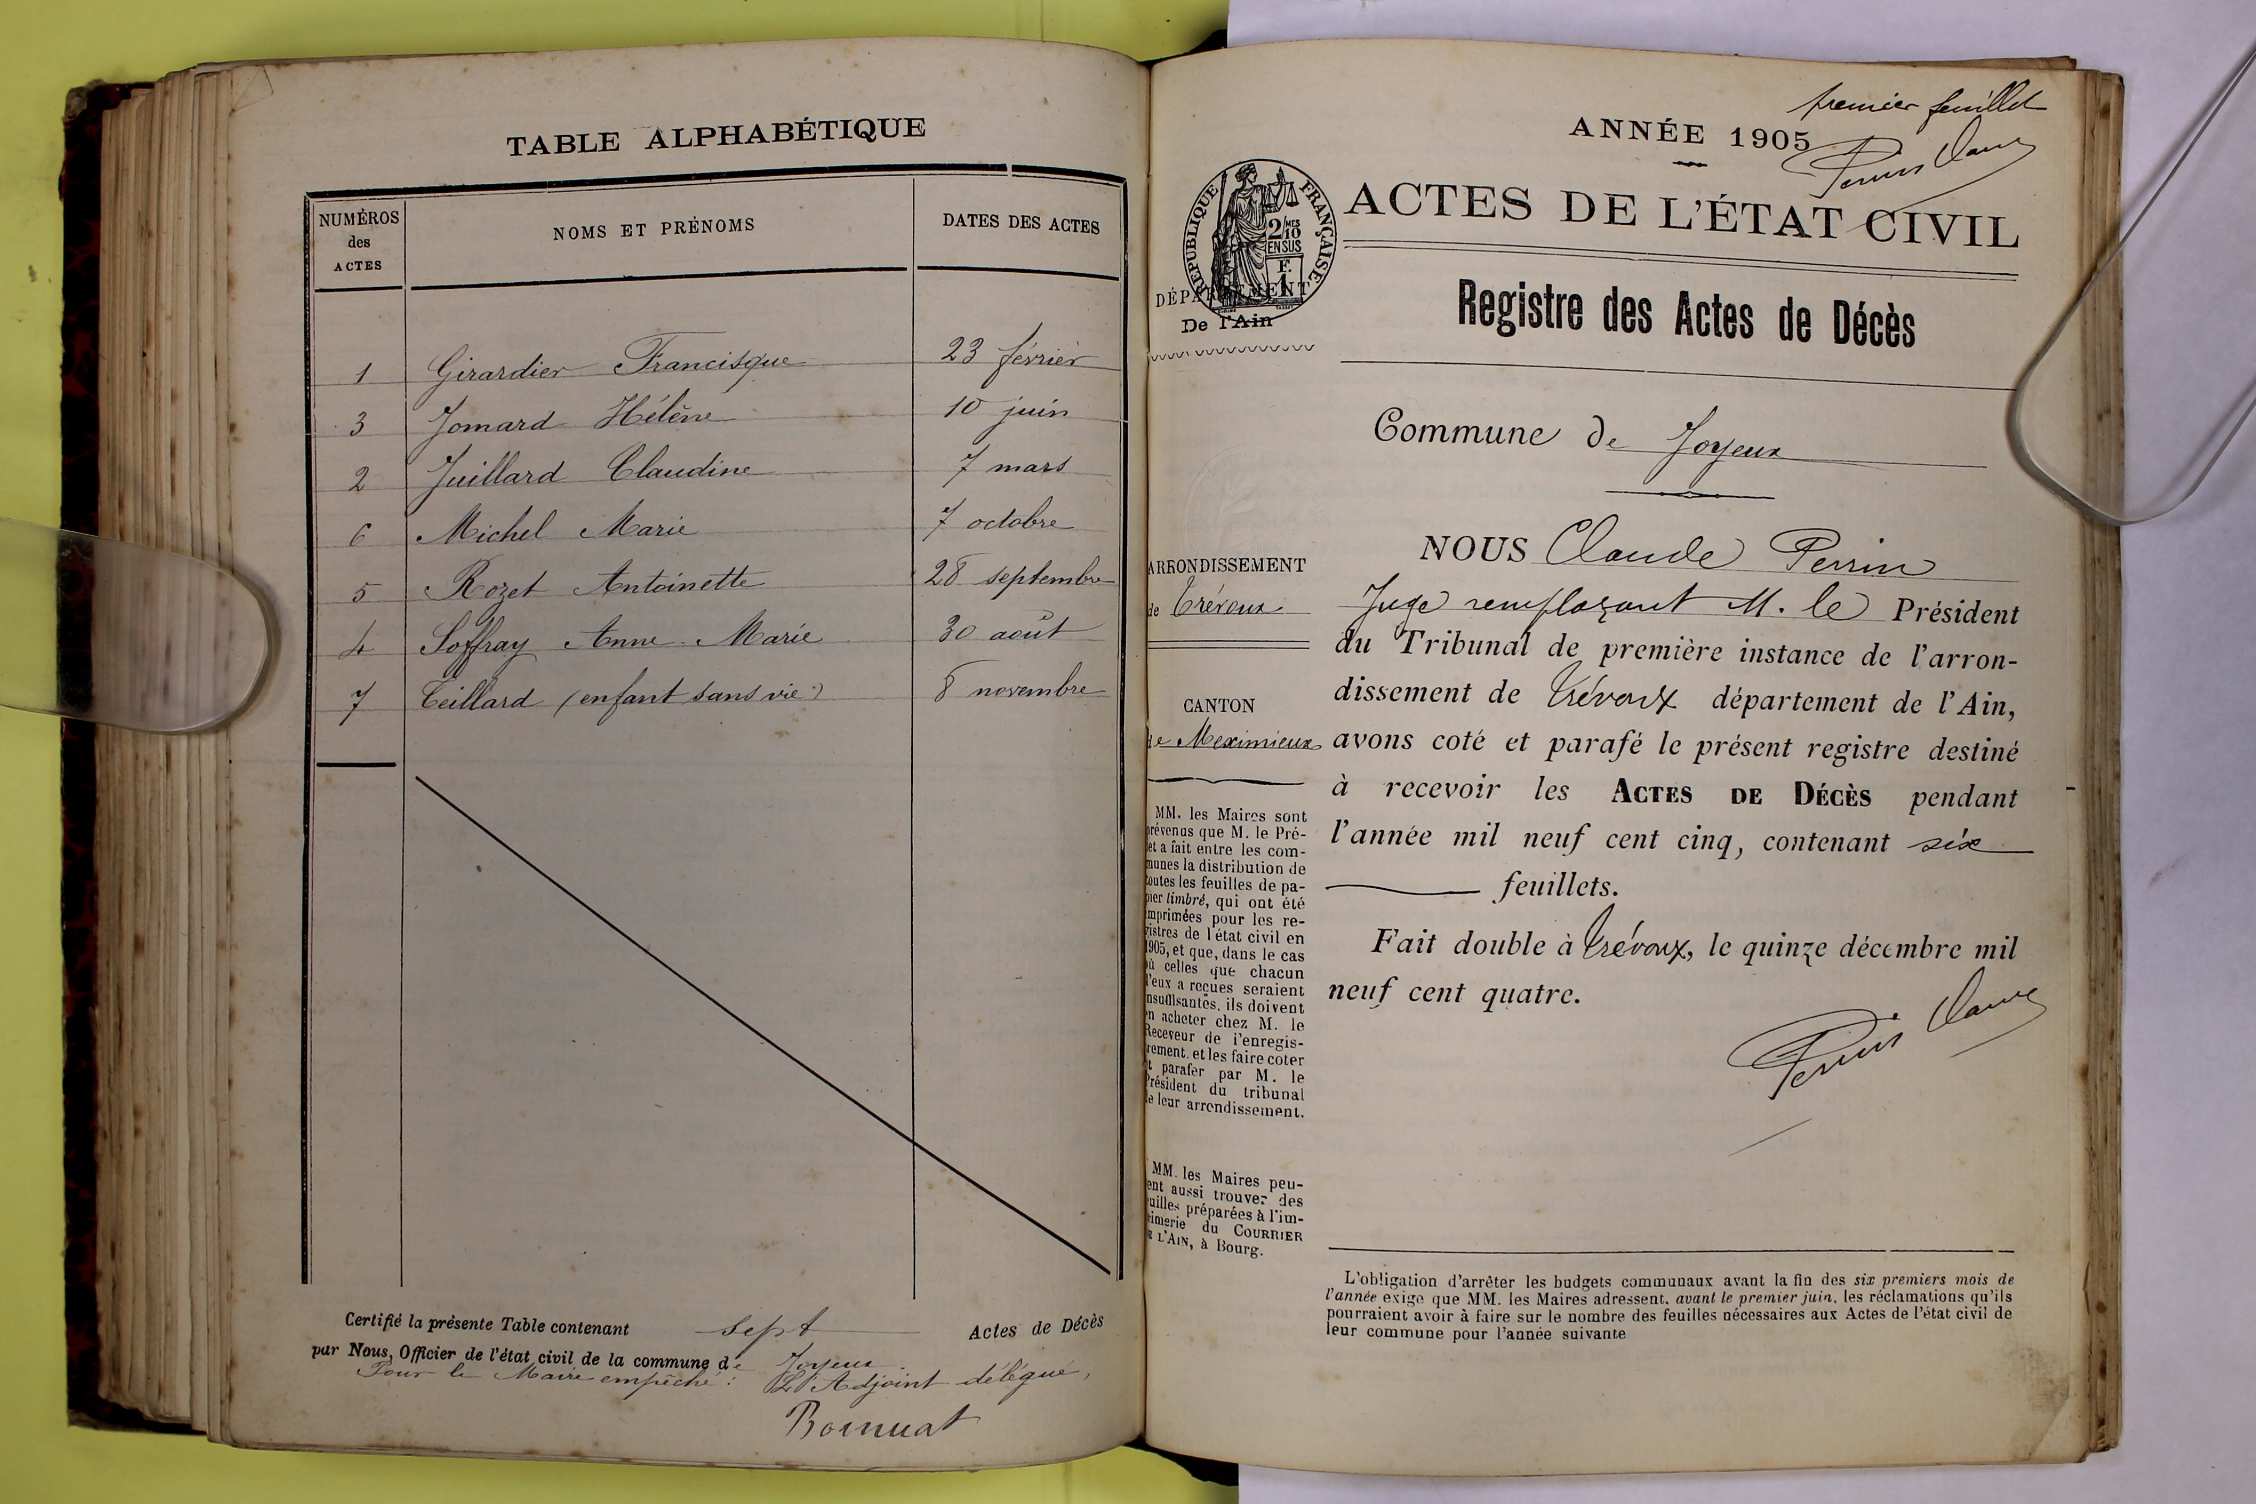 TABLE ALPHABÉTIQUE
NUMÉROS
des
ACTES
NOMS ET PRÉNOMS
DATES DES ACTES
1 Girardier Francisque 23 février
3 Jomard Hélène 10 juin
2 Juillard Claudine 7 mars
6 Michel Marie 7 octobre
5 Rozet Antoinette 28 septembre
4 Soffray Anne Marie 30 août
7 Teillard (enfant sans vie) 8 novembre
Certifié la présente Table contenant sept Actes de Décès
par Nous, Officier de l'état civil de la commune de Joyeux
Pour le Maire empêché : L'Adjoint délégué,
Bornuat
premier feuillet
ANNÉE 1905
Perrin Claude
ACTES DE L'ÉTAT CIVIL
RÉPUBLIQUE FRANÇAISE
2/10 MES
EN SUS
F.
1
DÉPARTEMENT
De l'Ain
Registre des Actes de Décès
Commune de Joyeux
ARRONDISSEMENT
de Trévoux
CANTON
de Meximieux
MM. les Maires sont
prévenus que M. le Pré-
fet a fait entre les com-
munes la distribution de
toutes les feuilles de pa-
pier timbré, qui ont été
imprimées pour les re-
gistres de l'état civil en
1905, et que, dans le cas
où celles que chacun
d'eux a reçues seraient
insuffisantes, ils doivent
en acheter chez M. le
Receveur de l'enregis-
trement, et les faire coter
et parafer par M. le
Président du tribunal
de leur arrondissement.
MM. les Maires peu-
vent aussi trouver des
feuilles préparées à l'im-
primerie du COURRIER
DE L'AIN, à Bourg.
NOUS Claude Perrin
Juge remplaçant M. le Président
du Tribunal de première instance de l'arron-
dissement de Trévoux département de l'Ain,
avons coté et parafé le présent registre destiné
à recevoir les ACTES DE DÉCÈS pendant
l'année mil neuf cent cinq, contenant six
feuillets.
Fait double à Trévoux, le quinze décembre mil
neuf cent quatre.
Perrin Claude
L'obligation d'arrêter les budgets communaux avant la fin des six premiers mois de
l'année exige que MM. les Maires adressent, avant le premier juin, les réclamations qu'ils
pourraient avoir à faire sur le nombre des feuilles nécessaires aux Actes de l'état civil de
leur commune pour l'année suivante